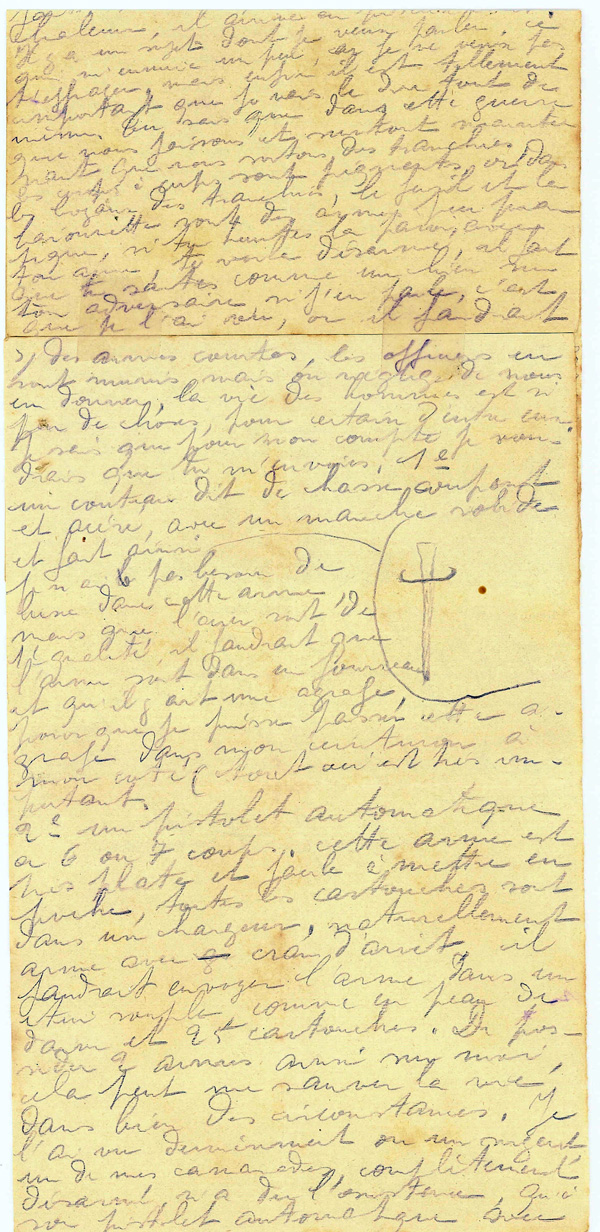 chaleur, il arrive en
Il y a un sujet dont je veux parler, ce
qui m'ennuie un peu, car je ne veux pas
t'effrayer, mais enfin il est tellement
important que je vais le dire tout de
même. Tu sais que dans cette guerre
que nous faisons et surtout
maut que nous sortons des tranchées, des
corps à corps sont fréquents, or dans
les boyaux des tranchées, le fusil et la
baïonnette sont des armes peu pra-
tique, si tu heurtes la paroi avec
ton arme, te voila désarmé, il faut
que tu sautes comme un chien sur
ton adversaire si j'en parle, c'est
que je l'ai vu, or il faudrait
des armes courtes, les officiers en
sont munis mais on néglige de nous
en donner, la vie des hommes est si
peu de choses, pour certain d'entre eux.
Je sais que pour mon compte je vou-
drais que tu m'envoies, 1º
un couteau dit de chasse coupant
et acéré, avec un manche solide
et fait ainsi
je n'ai pas besoin de
luxe dans cette arme,
mais que l'acier soit de
1e qualité, il faudrait que
l'arme soit dans un fourreau
et qu'il y ait une agrafe,
pour que je puisse passer cette a-
grafe dans mon ceinturon à
mon coté (tout ceci est très im-
portant.
2º un pistolet automatique
a 6 ou 7 coups. cette arme est
très plate et facile à mettre en
poche, toutes les cartouches sont
dans un chargeur, naturellement
arme avec cran d'arrêt, il
faudrait envoyer l'arme dans un
étui souple comme en peau de
daim et 25 cartouches. De pos-
séder 2 armes ainsi sur moi,
cela peut me sauver la vie,
dans bien des circonstances. Je
l'ai vu dernièrement ou un sergent
un de mes camarades, complètement
désarmé, n'a du l'existence qu'à
son pistolet automatique avec